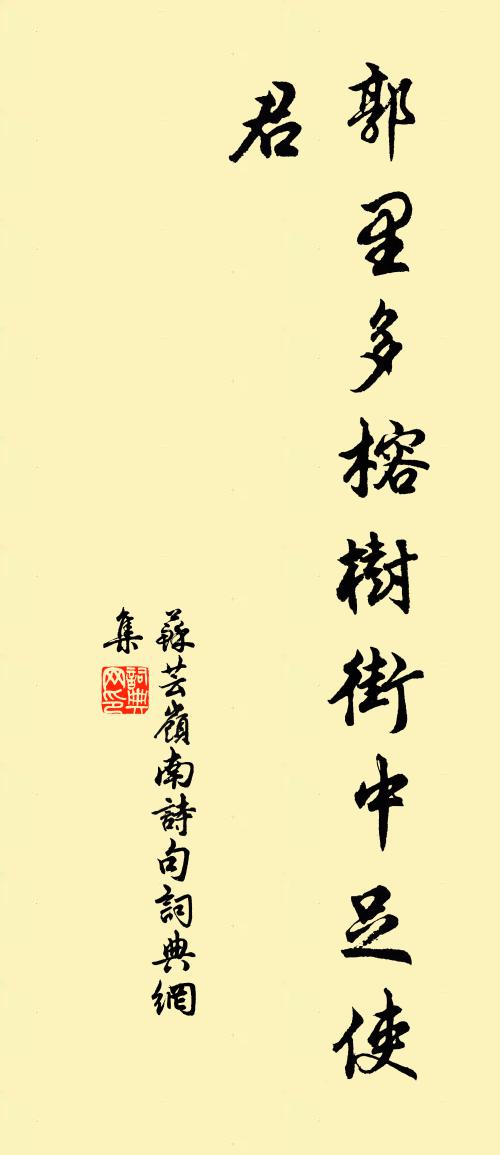 郭里多榕樹街中足使
君
蘇芸嶺南詩句詞典網
集
詞典
网印